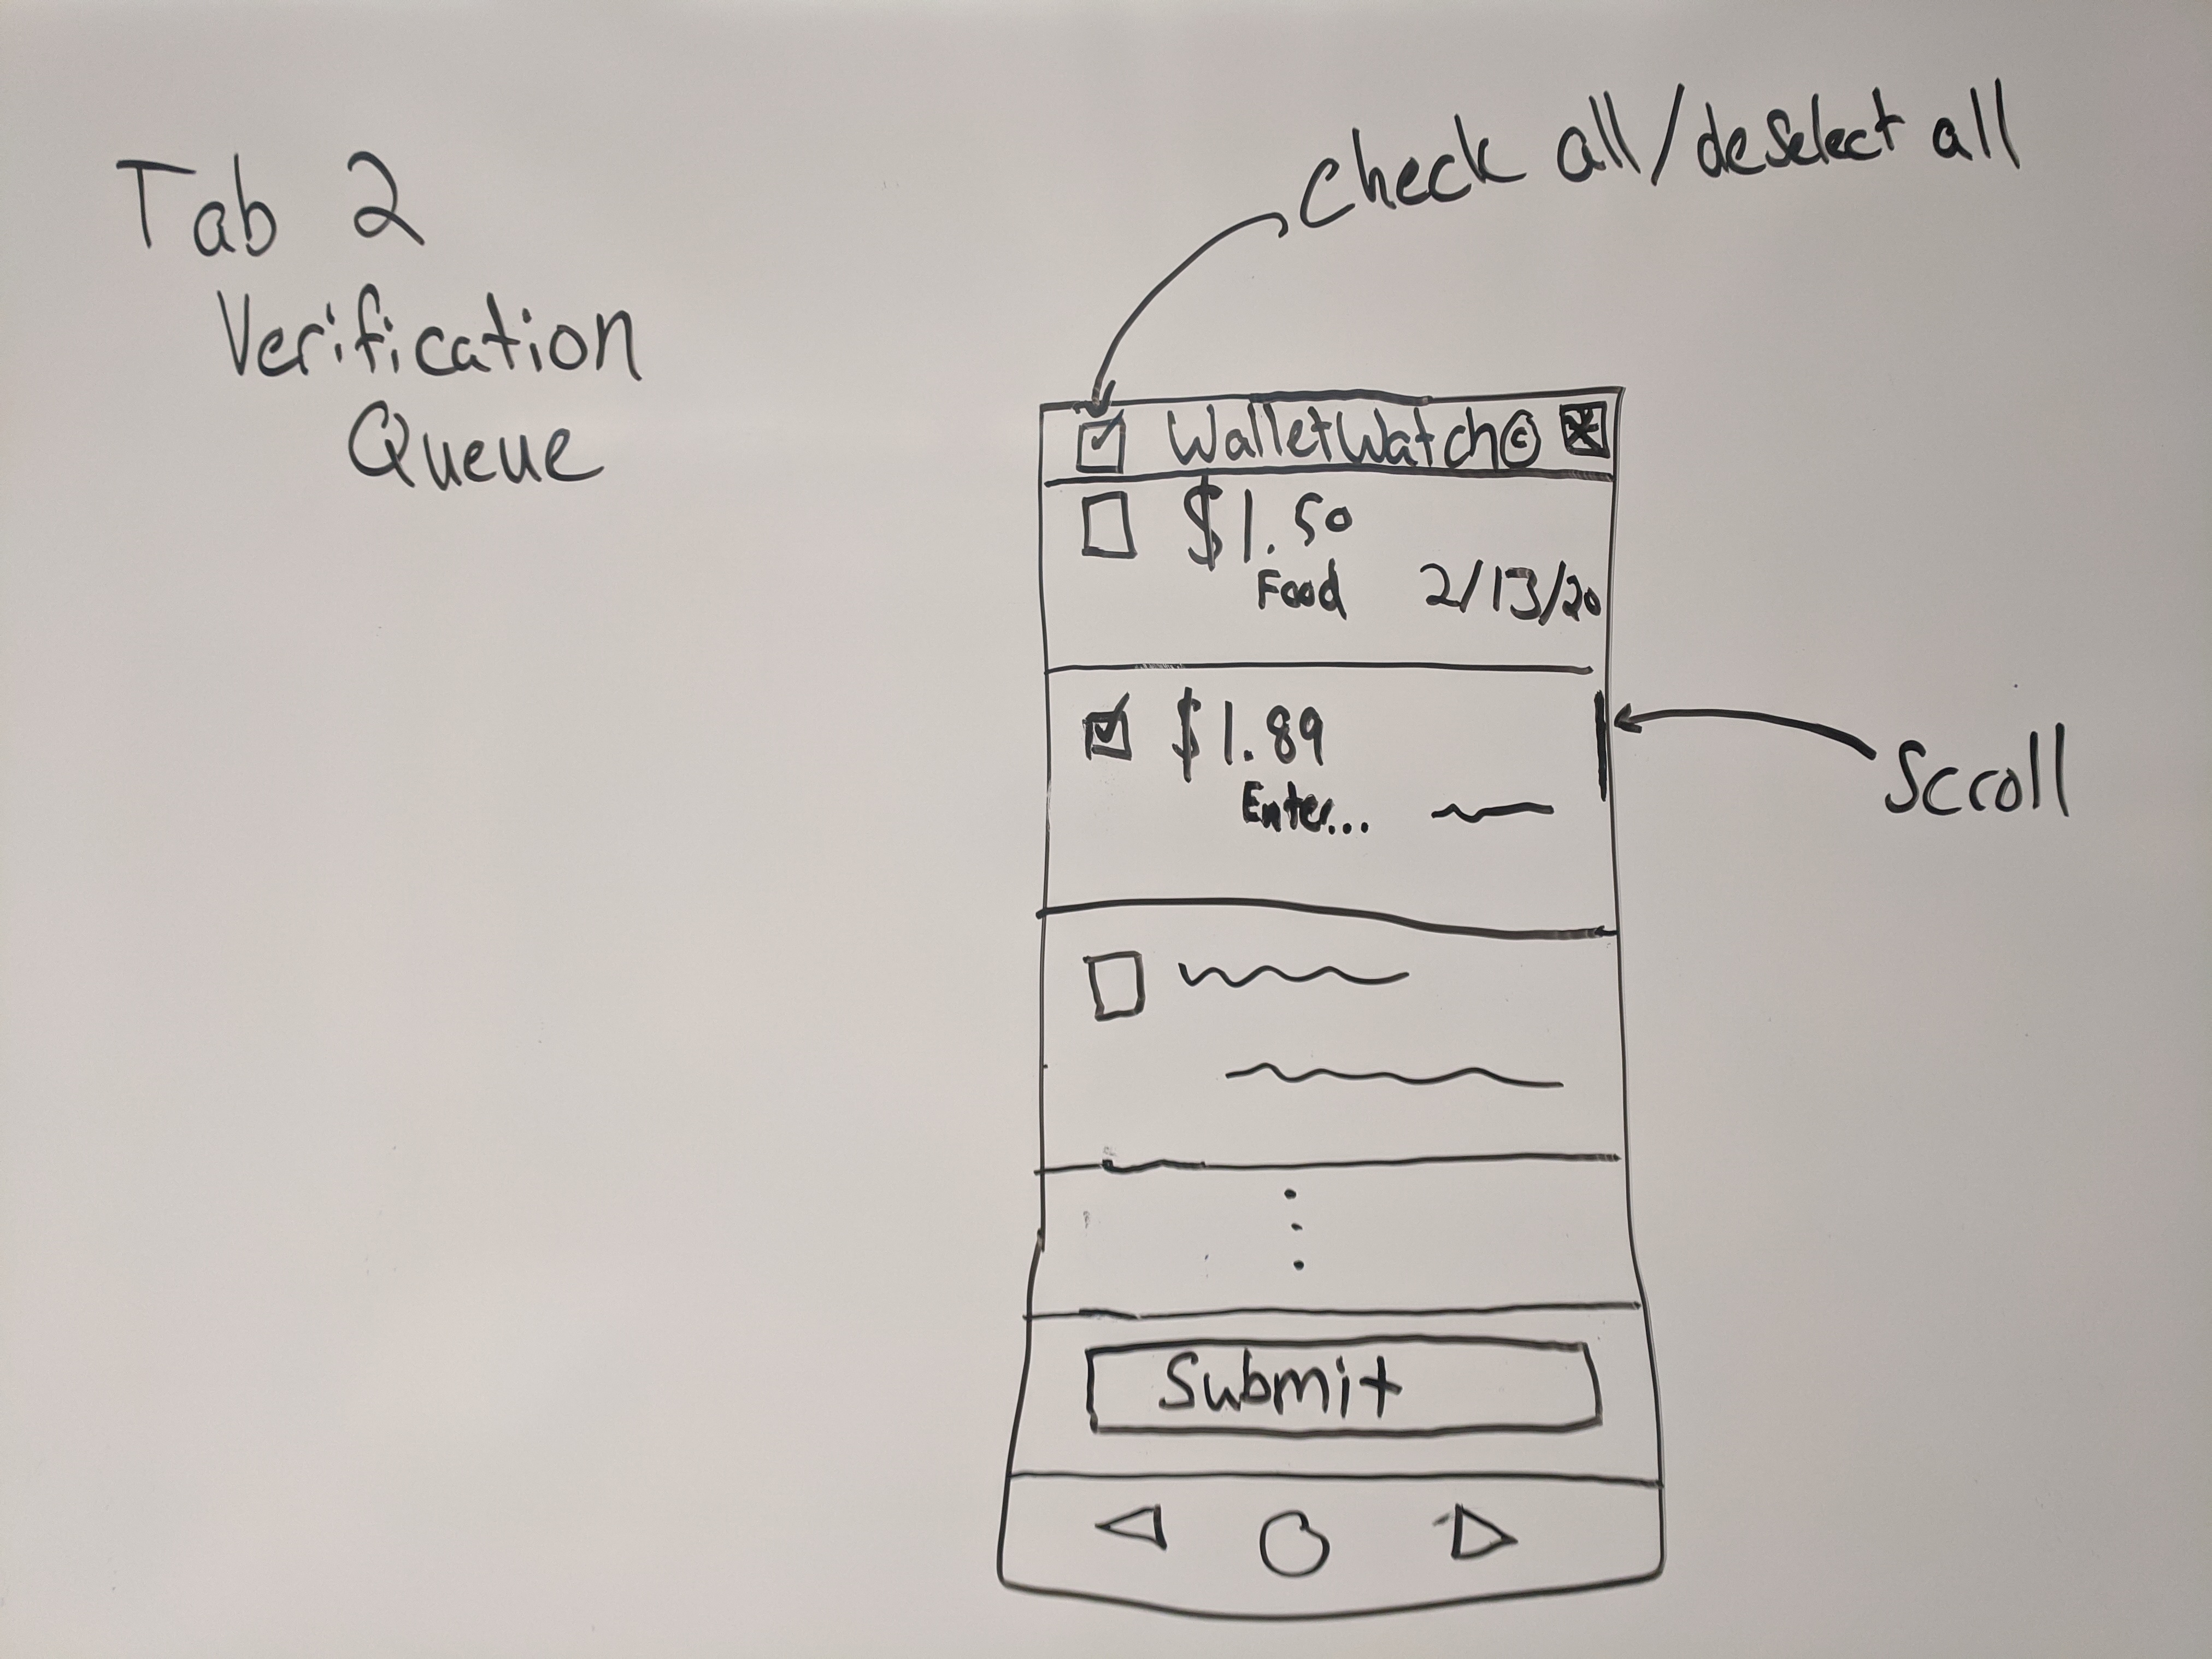 Tab 2
Verification
Queue
Check all/deselect all
WalletWatch©
$1.50
Food 2/13/20
$1.89
Enter...
Scroll
Submit